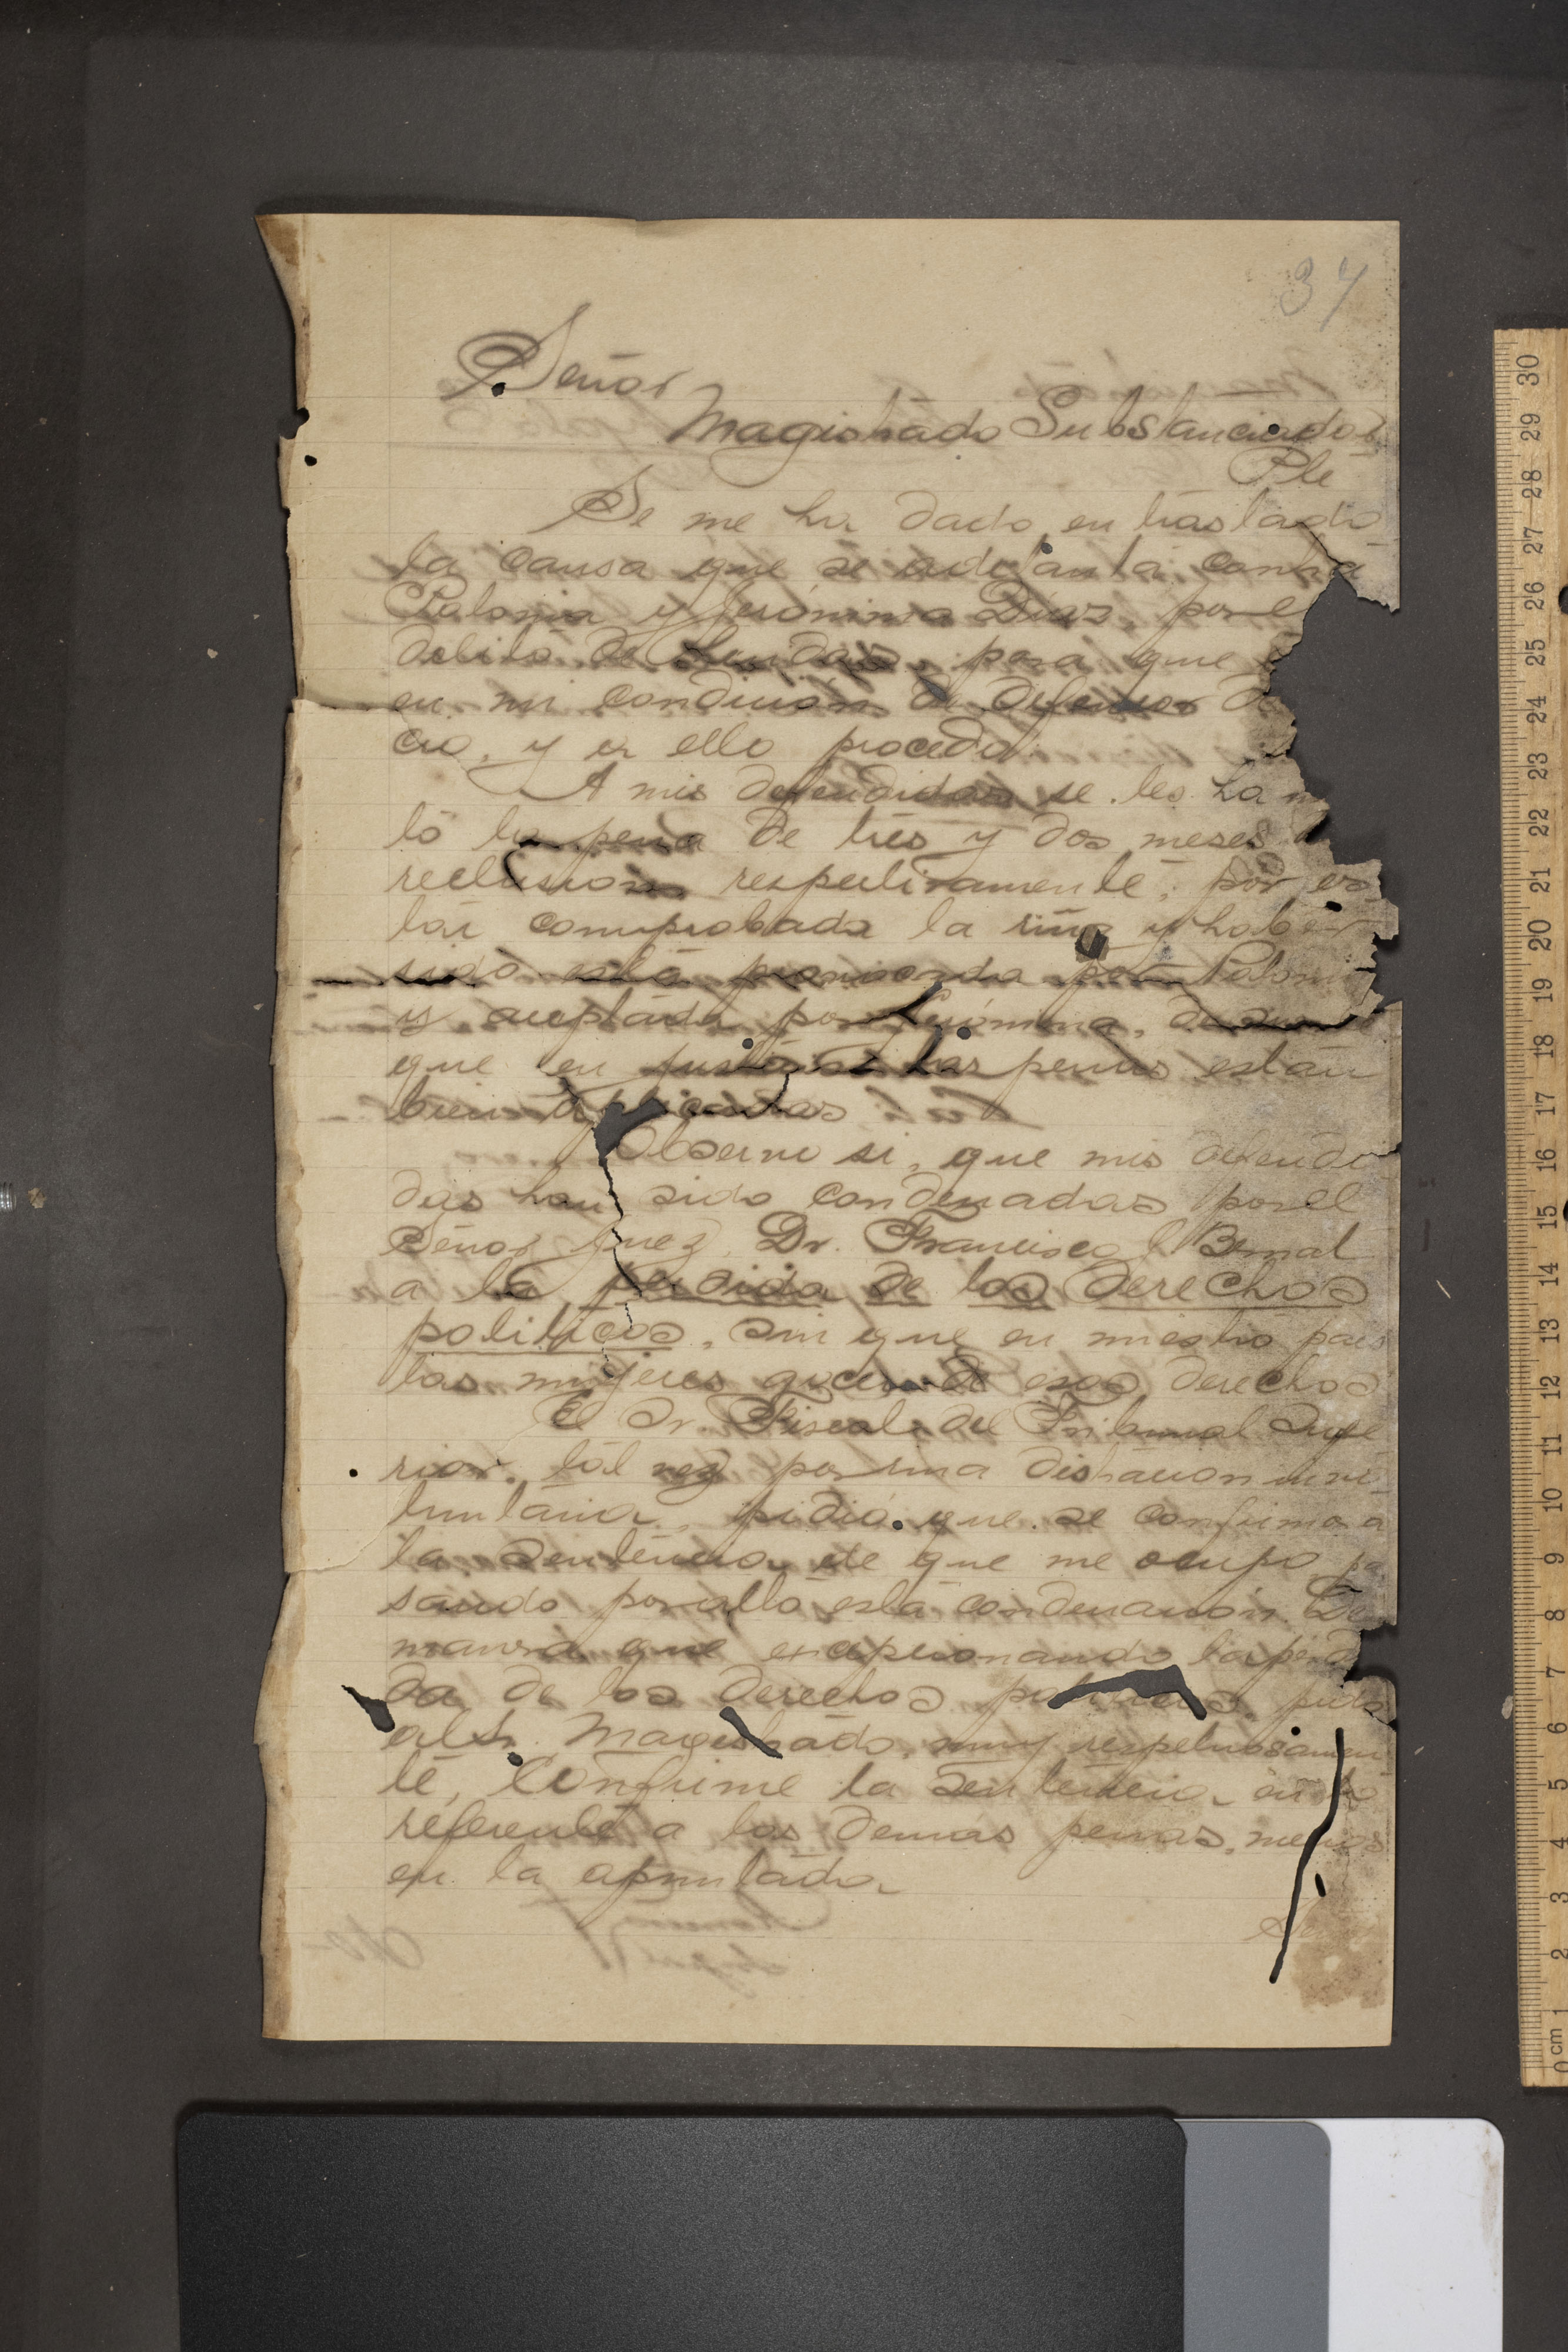 37
Señor
Magistrado Substanciador
Pte
Se me ha dado en traslado
la causa que se adelanta contra
Polonia y Gerónima Díaz, por el
delito de heridas, para que
en mi condición de defensor
cio, y a ello procedo.
A mis defendidas se les ha
to la pena de tres y dos meses
reclusión respectivamente, por es
tar comprobada la riña y haber
sido esta provocada por Poloni
y aceptada por Gerónima, de suerte
que en justicia las penas estan
bien aplicadas
Observo si, que mis defendi
das han sido condenadas por el
Señor Juez, Dr. Francisco J. Bernal
a la perdida de los derechos
politicos, sin que en nuestro pais
las mujeres gocen de esos derechos
El Sr. Fiscal del Tribunal Supe
rior, tal vez por una distracion invo
luntaria, pidió que se confirmara
la sentencia de que me ocupo, pa
sando por alto esta condenación. De
manera que excepcionando la perdi
da de los derechos politicos, pido
al Sr. Magistrado, muy respetuosamen
te, confirme la sentencia en lo
referente a las demás penas, menos
en la apuntada